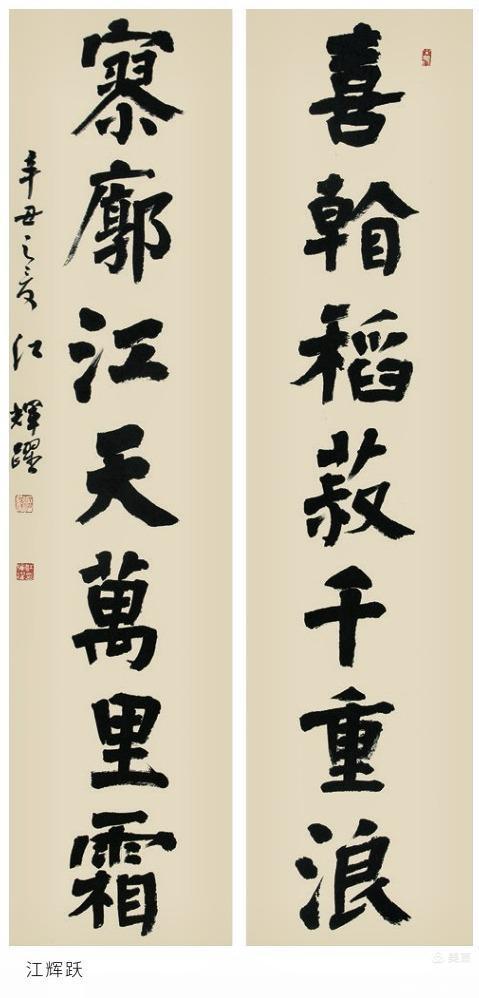 喜看稻菽千重浪
寥廓江天萬里霜
辛丑之夏 江輝躍
江辉跃
美篇